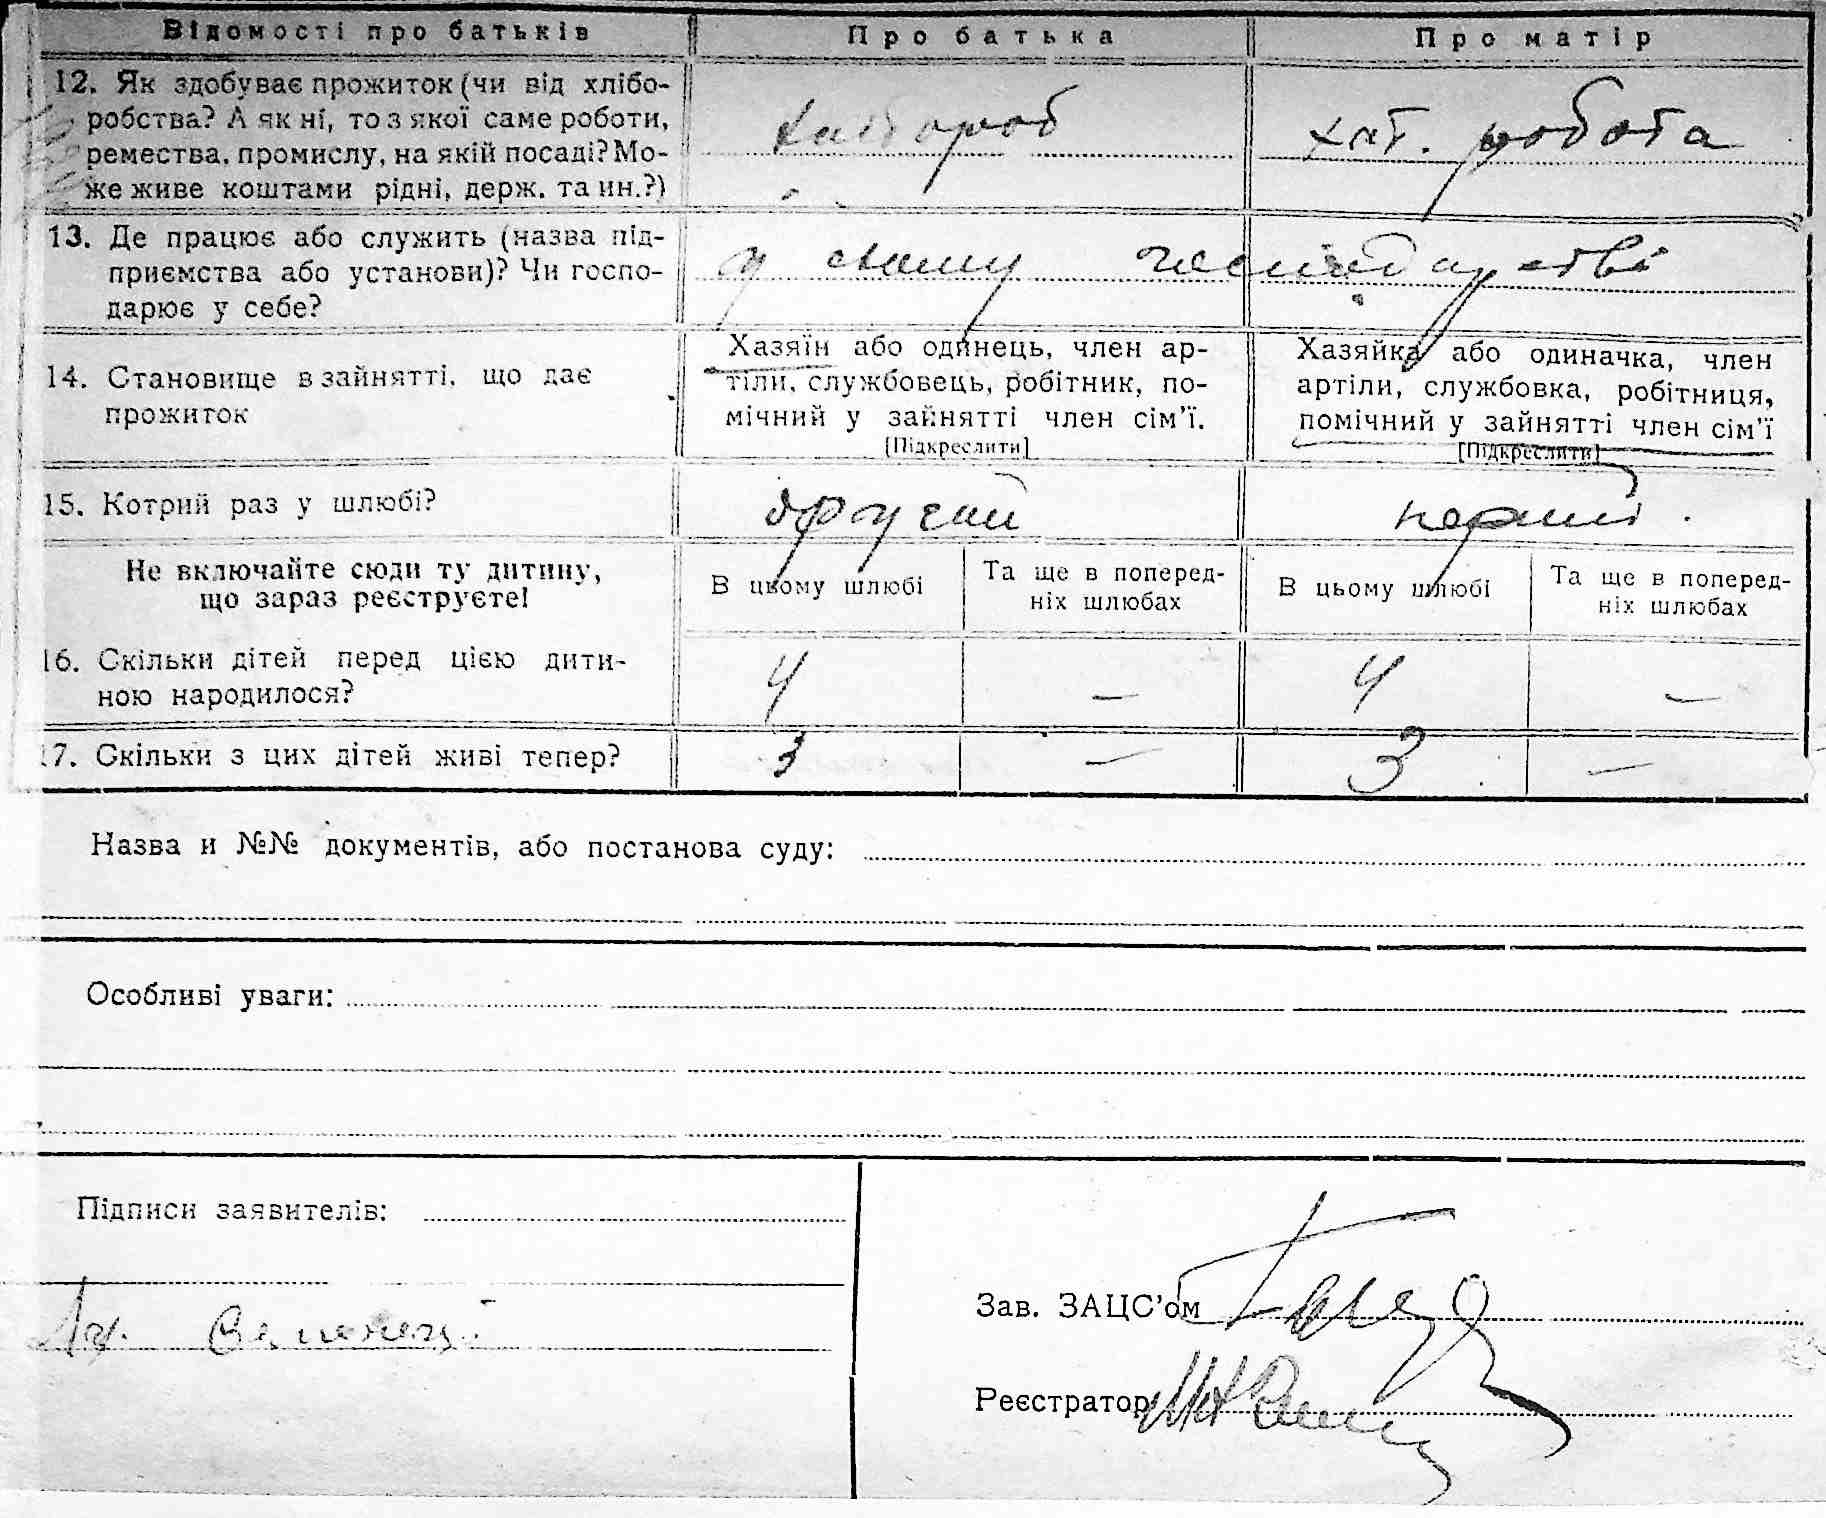 Відомості про батьків Про батька Про матір
12. Як здобуває прожиток (чи від хлібо-
робства? А як ні, то з якої саме роботи,
ремества, промислу, на якій посаді? Мо-
же живе коштами рідні, держ. та ин.?)
хлібороб хат. робота
13. Де працює або служить (назва під-
приємства або установи)? Чи госпо-
дарює у себе?
у свому господарстві
14. Становище в зайнятті, що дає
прожиток
Хазяїн або одинець, член ар-
тіли, службовець, робітник, по-
мічний у зайнятті член сім'ї.
[Підкреслити]
Хазяйка або одиначка, член
артіли, службовка, робітниця,
помічний у зайнятті член сім'ї
[Підкреслити]
15. Котрий раз у шлюбі? другий перший.
Не включайте сюди ту дитину,
що зараз реєструєте!
В цьому шлюбі
Та ще в поперед-
ніх шлюбах
В цьому шлюбі
Та ще в поперед-
ніх шлюбах
16. Скільки дітей перед цією дити-
ною народилося?
4 — 4 —
17. Скільки з цих дітей живі тепер? 3 — 3 —
Назва и №№ документів, або постанова суду:
Особливі уваги:
Підписи заявителів:
Зав. ЗАЦС'ом
Реєстратор